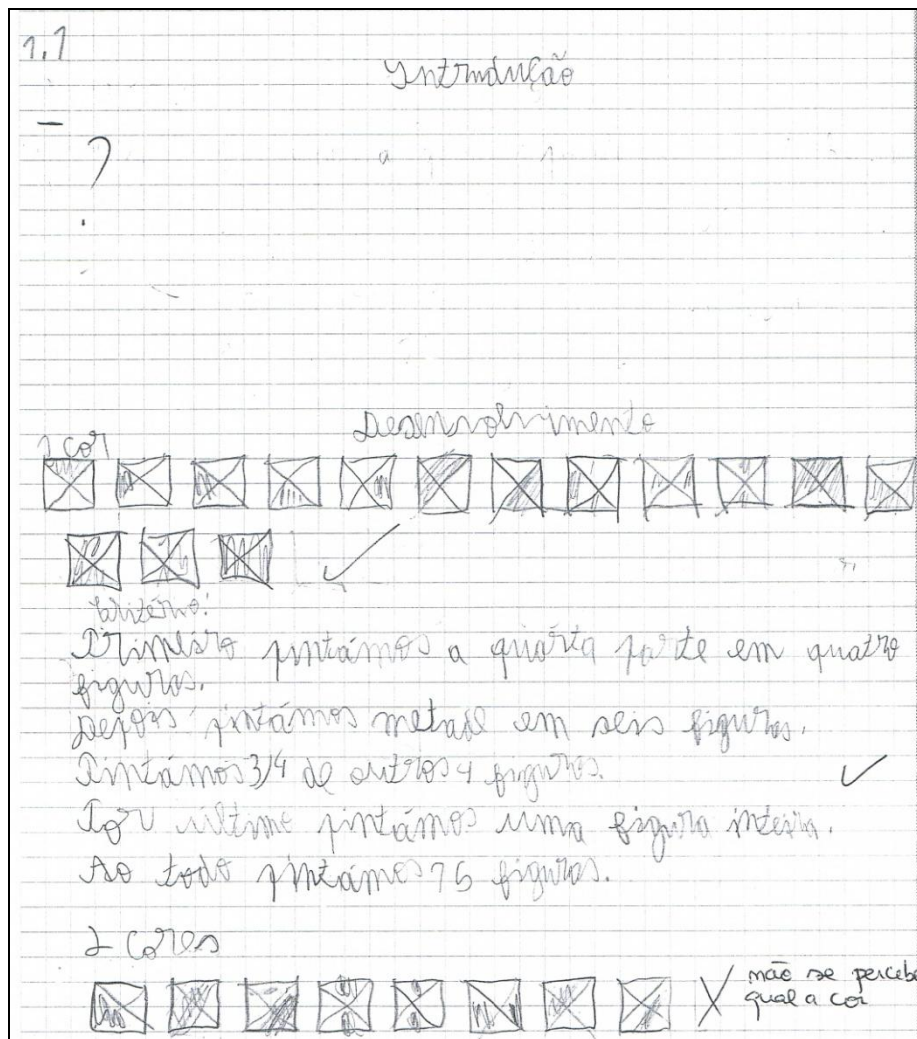 1.1
Introdução
?
Desenvolvimento
1 cor
Critério:
Primeiro pintámos a quarta parte em quatro
figuras.
Depois pintámos metade em seis figuras.
Pintámos 3/4 de outros 4 figuras.
Por último pintámos uma figura inteira.
Ao todo pintámos 15 figuras.
2 cores
não se percebe
qual a cor